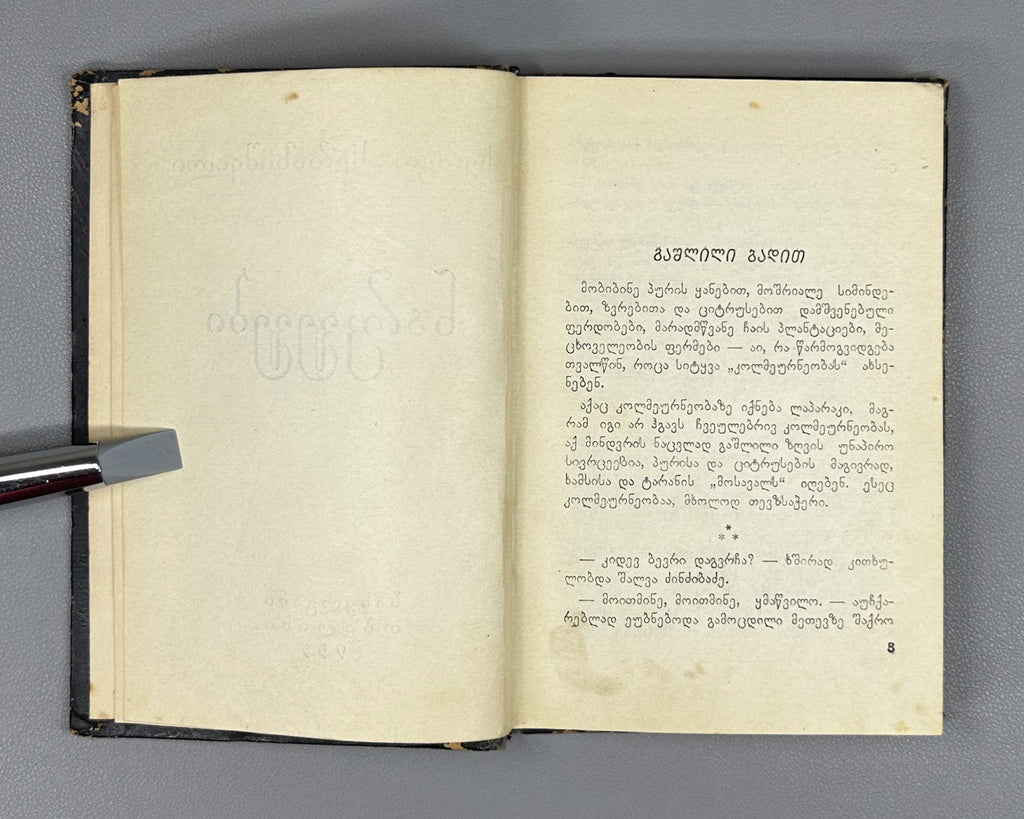 გაშლილი ბადით
მობიბინე პურის ყანებით, მოშრიალე სიმინდე-
ბით, ზვრებითა და ციტრუსებით დამშვენებული
ფერდობები, მარადმწვანე ჩაის პლანტაციები, მე-
ცხოველეობის ფერმები — აი, რა წარმოგვიდგება
თვალწინ, როცა სიტყვა „კოლმეურნეობას“ ახსე-
ნებენ.
აქაც კოლმეურნეობაზე იქნება ლაპარაკი, მაგ-
რამ იგი არ ჰგავს ჩვეულებრივ კოლმეურნეობას,
აქ მინდვრის ნაცვლად გაშლილი ზღვის უნაპირო
სივრცეებია, პურისა და ციტრუსების მაგივრად,
ხამსისა და ტარანის „მოსავალს“ იღებენ. ესეც
კოლმეურნეობაა, მხოლოდ თევზსაჭერი.
*
* *
— კიდევ ბევრი დაგვრჩა? — ხშირად კითხუ-
ლობდა შალვა ძინძიბაძე.
— მოითმინე, მოითმინე, ყმაწვილო. — აუჩქა-
რებლად ეუბნებოდა გამოცდილი მეთევზე შაქრო
3